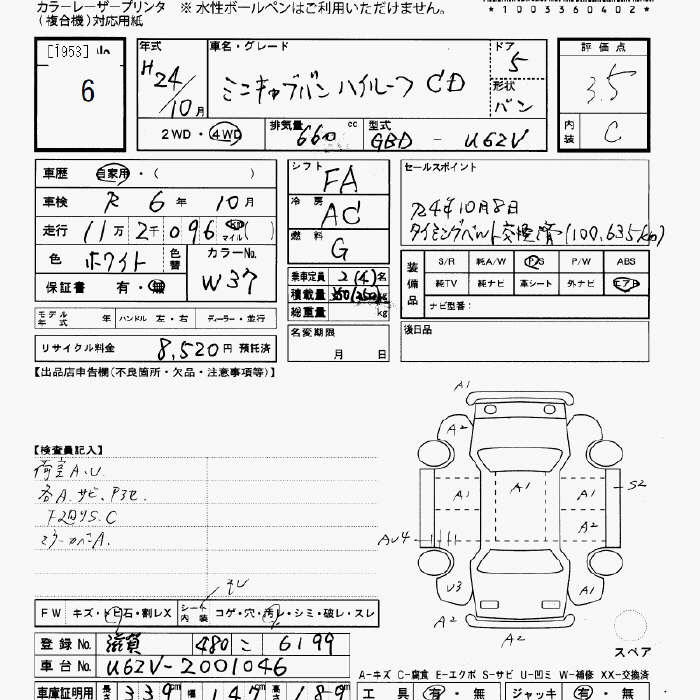 カラーレーザープリンタ ※ 水性ボールペンはご利用いただけません。
(複合機)対応用紙
*1003360402*
[1953]
6
年式
H24/10月
車名・グレード
ミニキャブバン ハイルーフ CD
ドア
5
形状
バン
2WD・4WD
排気量 660 cc
型式 GBD - U62V
評価点
3.5
内装
C
車歴 自家用・( )
車検 R 6 年 10 月
走行 11万 2千 096 km マイル( )
色 ホワイト 色替
カラーNo.
W37
保証書 有・無
シフト
FA
冷房
AC
燃料
G
乗車定員 2(4)名
積載量 350(250)kg
総重量 kg
セールスポイント
R4年10月8日
タイミングベルト交換済(100,635km)
装備品
S/R 純A/W P/S P/W ABS
純TV 純ナビ 革シート 外ナビ エアB
ナビ型番:
モデル年式 年 ハンドル 左・右 ディーラー・並行
リサイクル料金 8,520円 預託済
名変期限
月 日
後日品
【出品店申告欄(不良箇所・欠品・注意事項等)】
【検査員記入】
荷室A.U.
各A.サビ.
ミラーカバーA.
A1
A2
A2
A1
A1
A1
S2
A2
AU4
U3
A1
A2
A2
スペア
FW キズ・トビ石・割レX
シート内装 コゲ・穴・汚レ・シミ・破レ・スレ
登録No. 滋賀 480 こ 6199
車台No. U62V-2001046
A-キズ C-腐食 E-エクボ S-サビ U-凹ミ W-補修 XX-交換済
車庫証明用 長さ 339cm 幅 147cm 高さ 189cm
工具 有・無 ジャッキ 有・無